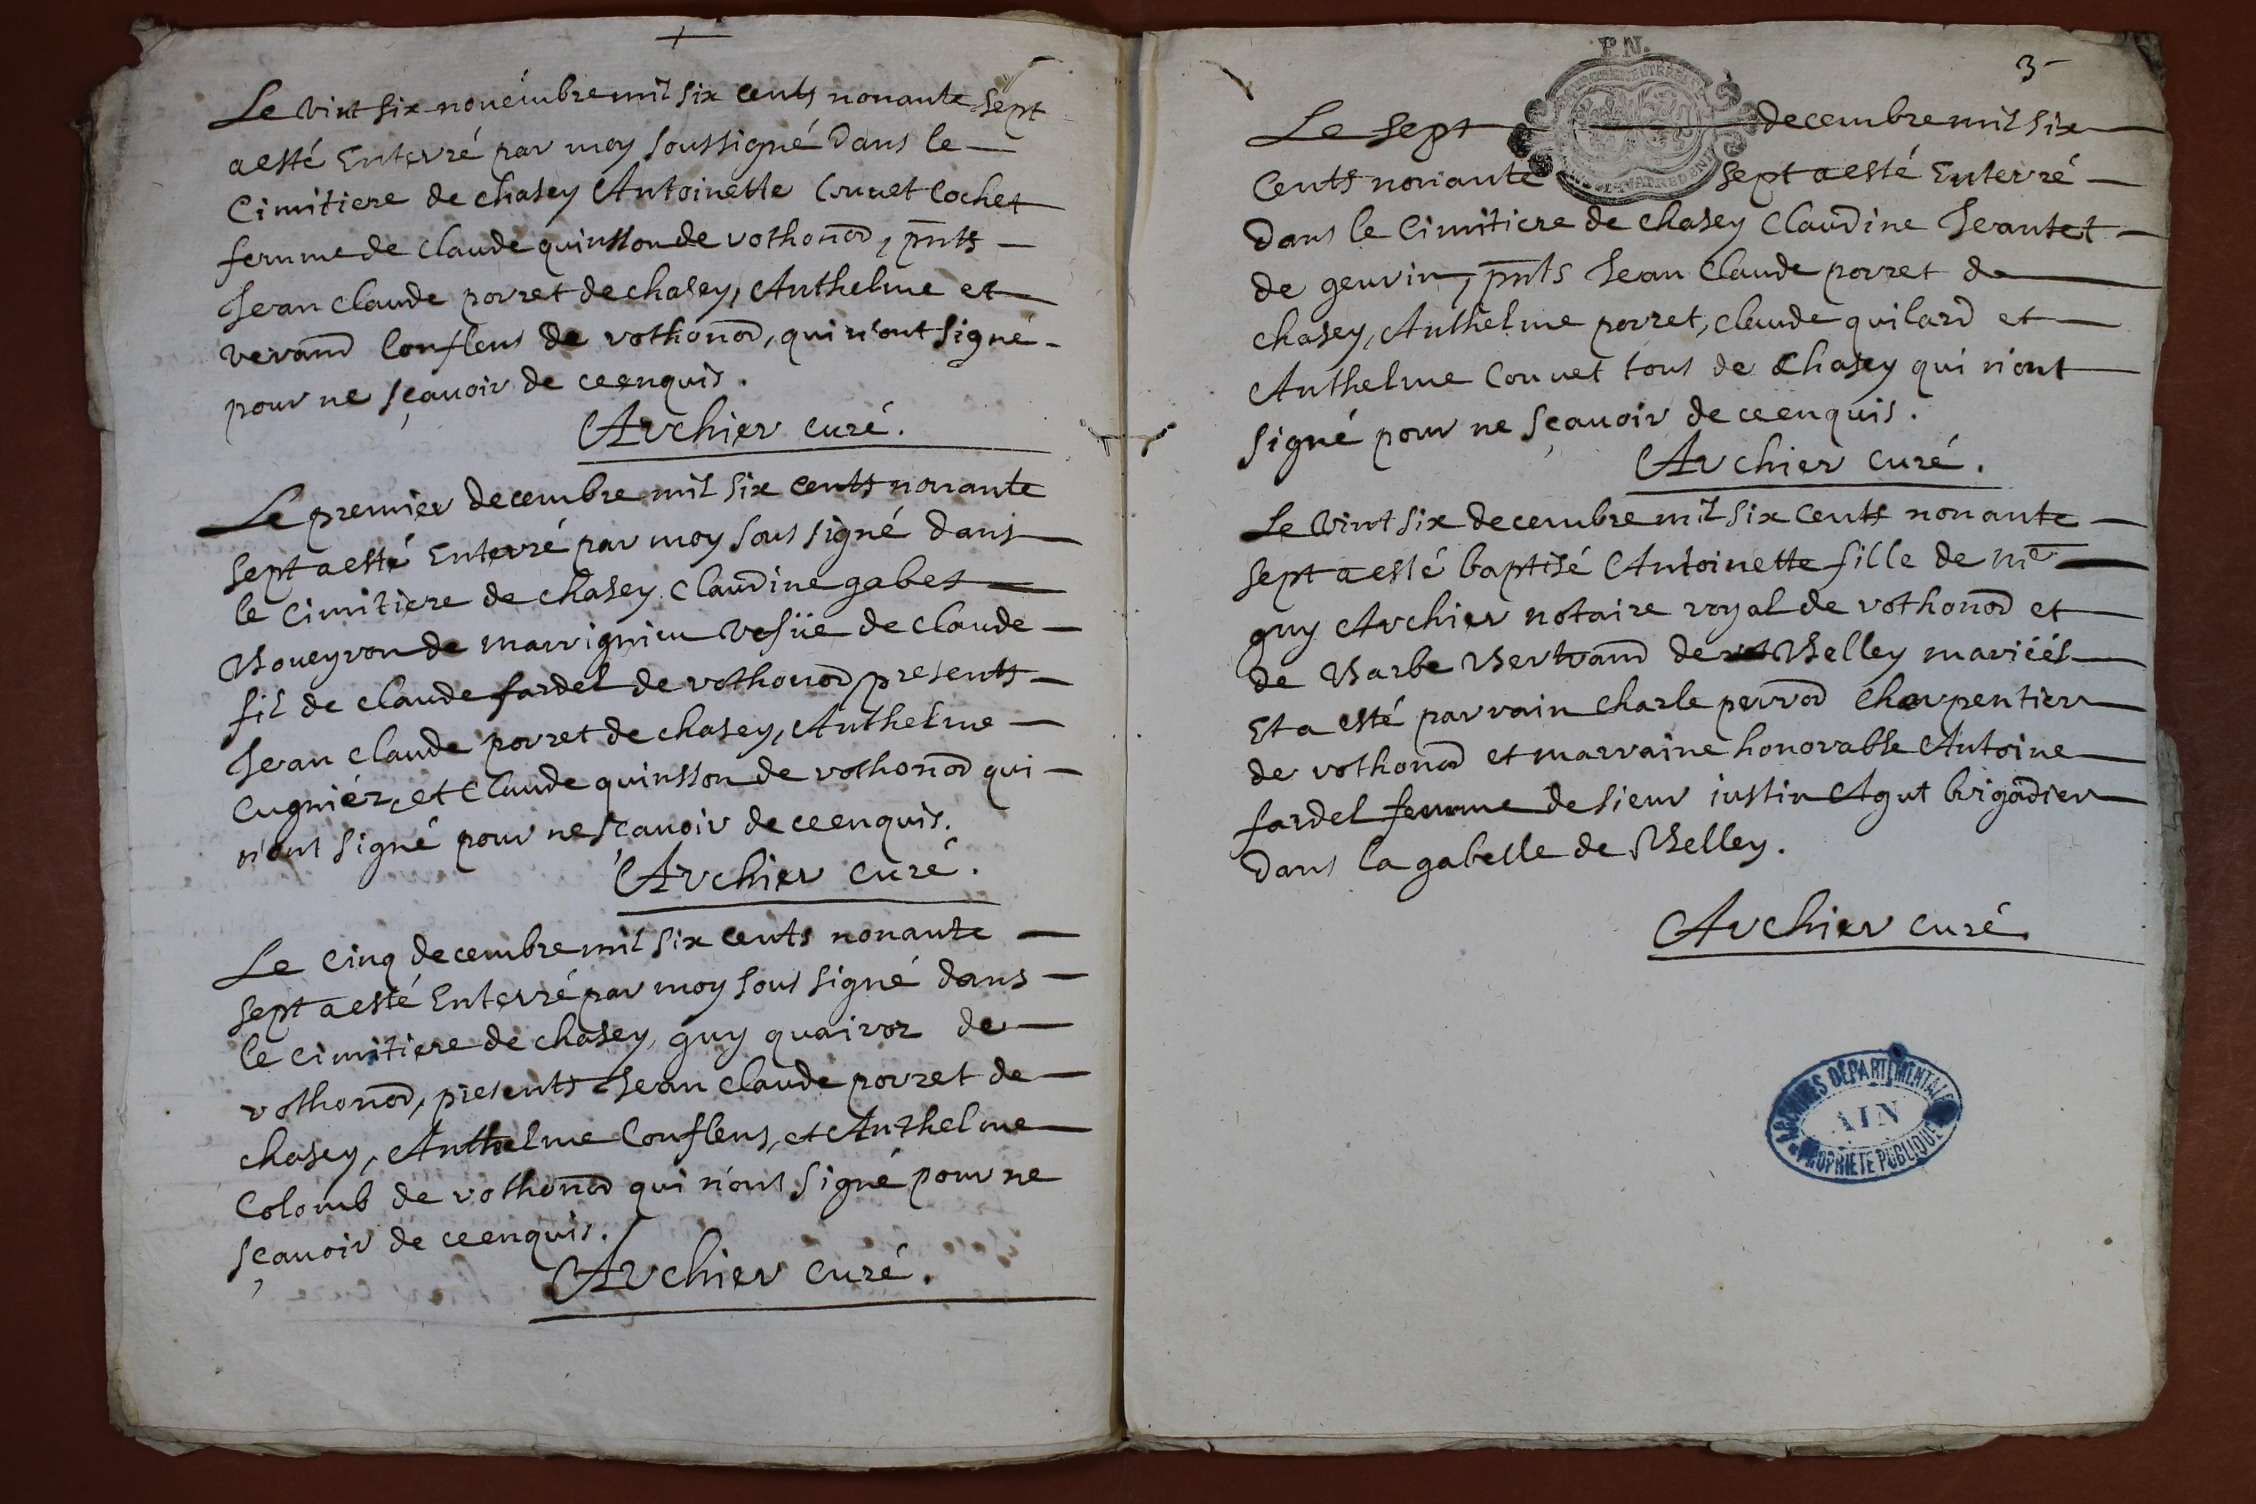 Le vint six novembre mil six cents nonante sept
a esté Enterré par moy soussigné Dans le
Cimitiere de chasey Antoinette Couvet Cochet
femme de claude quinsson de vothonod, pnts
Jean claude porret de chasey, Anthelme et
verand Conflens de vothonod, qui n'ont signé
pour ne sçavoir de ce enquis.
Archier curé.
Le premier decembre mil six cents nonante
sept a esté Enterré par moy sous signé dans
le Cimitiere de chasey Claudine gabet
Boueyron de marrigniu vefüe de claude
fil de claude fardel de vothonod, presents
Jean claude porret de chasey, Anthelme
Cugniér, et Claude quinsson de vothonod qui
n'ont signé pour ne sçavoir de ce enquis.
Archier curé.
Le cinq decembre mil six cents nonante
sept a esté Enterré par moy sous signé dans
le cimitiere de chasey, guy quairoz de
vothonod, presents Jean claude porret de
chasey, Anthelme Conflens, et Anthelme
Colomb de vothonod qui n'ont signé pour ne
sçavoir de ce enquis.
Archier curé.
P.N.
3
Le sept decembre mil six
Cents nonante sept a esté Enterré
dans le Cimitiere de chasey Claudine Jeantet
de geuvin, pnts Jean Claude porret de
chasey, Anthelme porret, claude quilard et
Anthelme Couvet tous de Chasey qui n'ont
signé pour ne sçavoir de ce enquis.
Archier curé.
Le vint six decembre mil six Cents nonante
sept a esté baptisé Antoinette fille de me
guy Archier notaire royal de vothonod et
de Barbe Bertrand de Belley mariéés
Et a esté parrain charle perrod Charpentier
de vothonod et marraine honorable Antoine
fardel femme de sieur justin Agut brigadier
Dans la gabelle de Belley.
Archier curé.
ARCHIVES DÉPARTEMENTALES
AIN
PROPRIETE PUBLIQUE